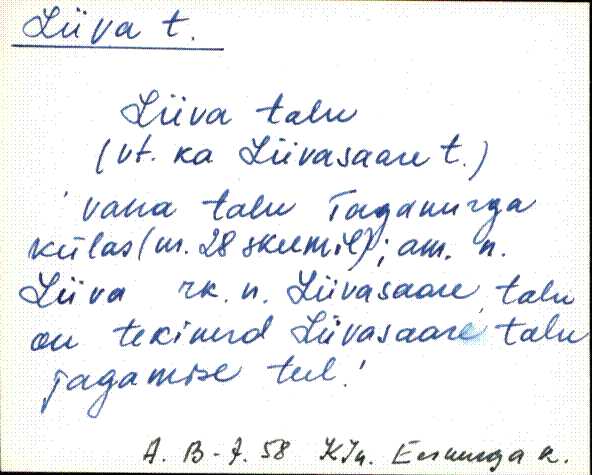 Liiva t.
Liiva talu
(vt. ka Liivasaare t.)
vana talu Taganurga
külas (nr. 28 skeemil); am. n.
Liiva rk. n. Liivasaare talu
on tekinud Liivasaare talu
jagamise teel.
A. B-J. 58 KJn. Eesnurga k.